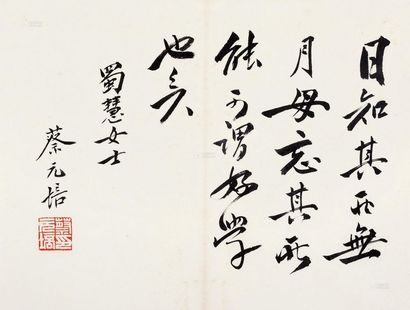 日知其所無
月毋忘其所
能可謂好学
也矣
蜀慧女士
蔡元培